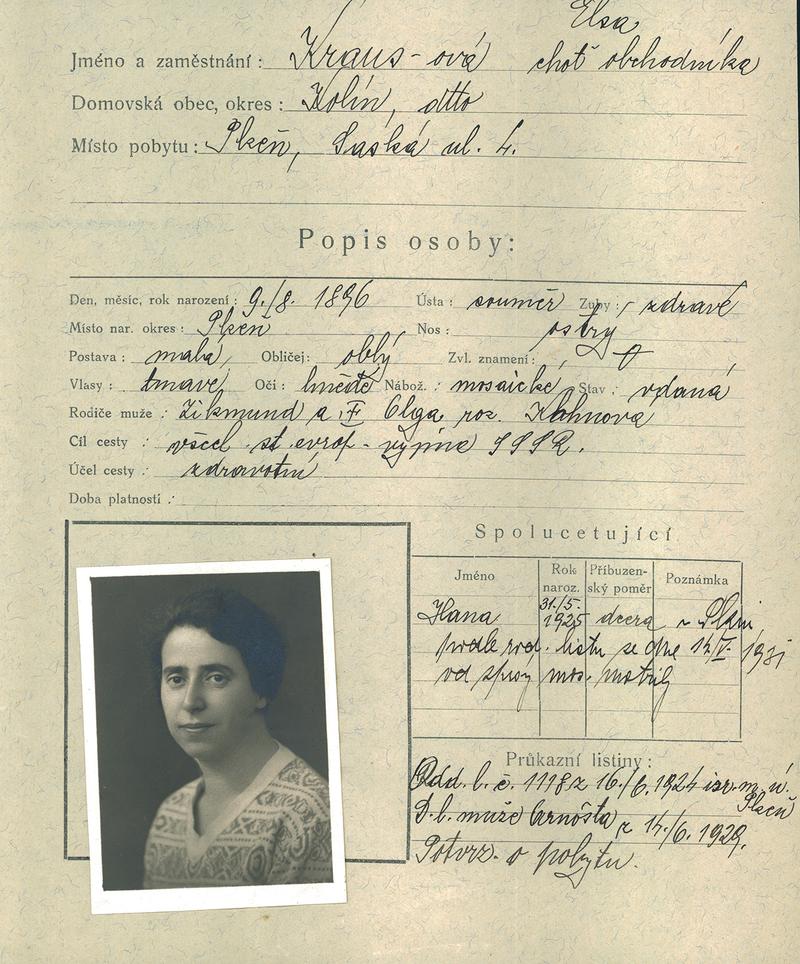 Elsa
Jméno a zaměstnání: Kraus-ová choť obchodníka
Domovská obec, okres: Kolín, dtto
Místo pobytu: Plzeň, Saská ul. 4.
Popis osoby:
Den, měsíc, rok narození: 9./8. 1896 Ústa: souměr Zuby: zdravé
Místo nar. okres: Plzeň Nos: ostrý
Postava: malá Obličej: oblý Zvl. znamení:
Vlasy: tmavé Oči: hnědé Nábož.: mosaické Stav: vdaná
Rodiče muže: Zikmund a Olga roz. Kohnová
Cíl cesty: všech st. evrop - vyjma SSSR.
Účel cesty: zdravotní
Doba platnosti:
Spolucetující
Jméno Rok naroz. Příbuzenský poměr Poznámka
Hana 31./5. 1925 dcera v Plzni
podle rod. listu ze dne 14/V. 1931
od správy mos. matriky
Průkazní listiny:
Odd. l. č. 1118 z 16./6. 1924 isr. m. ú. Plzeň
D. l. muže Arnošta z 14./6. 1929.
Potvrz. o pobytu.